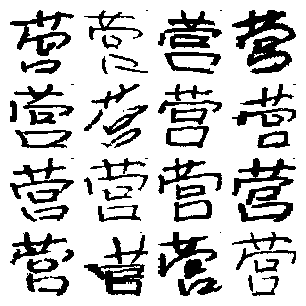 营营营营
营营营营
营营营营
营营营营